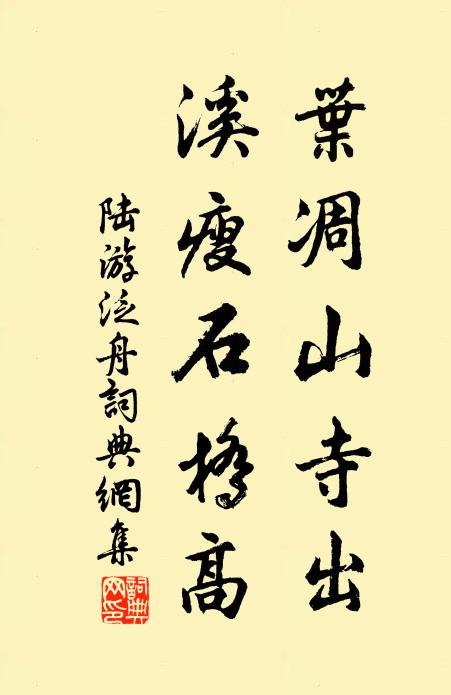 葉凋山寺出
溪瘦石橋高
陸游泛舟詞典網集
詞典網印